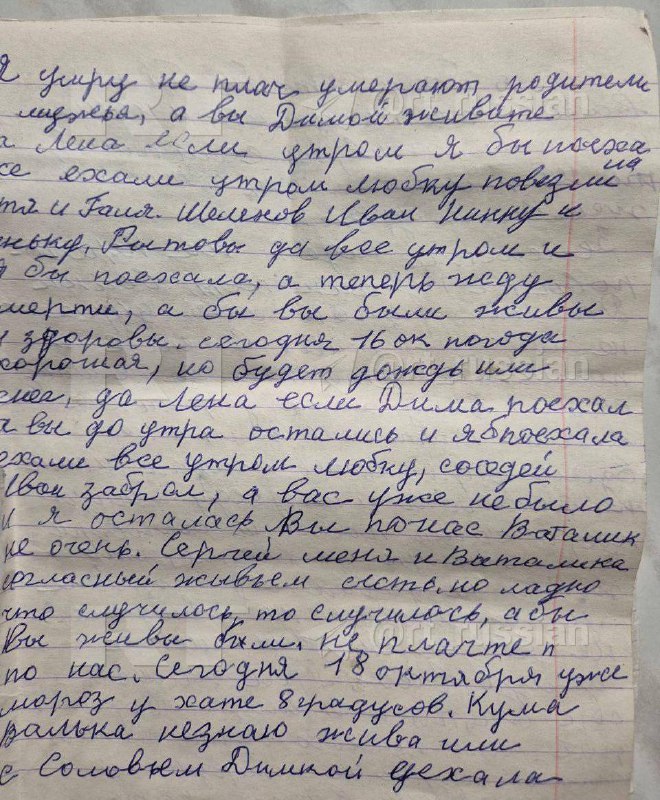 я умру не плач умерают родители
и мужья, а вы Димой живите
а Лена если утром я бы поеха
ла
се ехали утром любку повезли
тя и Галя. Шеленов Иван Нинку и
еньку, Рытовы да все утром и
я бы поехала, а теперь жду
мерти, а бы вы были живы
и здоровы. сегодня 16 ок погода
хорошая, но будет дождь или
снег, да Лена если Дима поехал
а вы до утра остались и я б поехала
ехали все утром любку, соседей
Иван забрал, а вас уже не было
и я осталась Вы по нас Виталик
не очень. Сергей меня и Виталика
согласный живьем сьесть, но ладно
что случилось, то случилось, абы
Вы живы были, не плачте п
по нас. Сегодня 18 октября уже
мороз у хате 8 градусов. Кума
Валька незнаю жива или
с Соловьем Димкой уехала
@rt_russian
@rt_russian
@rt_russian